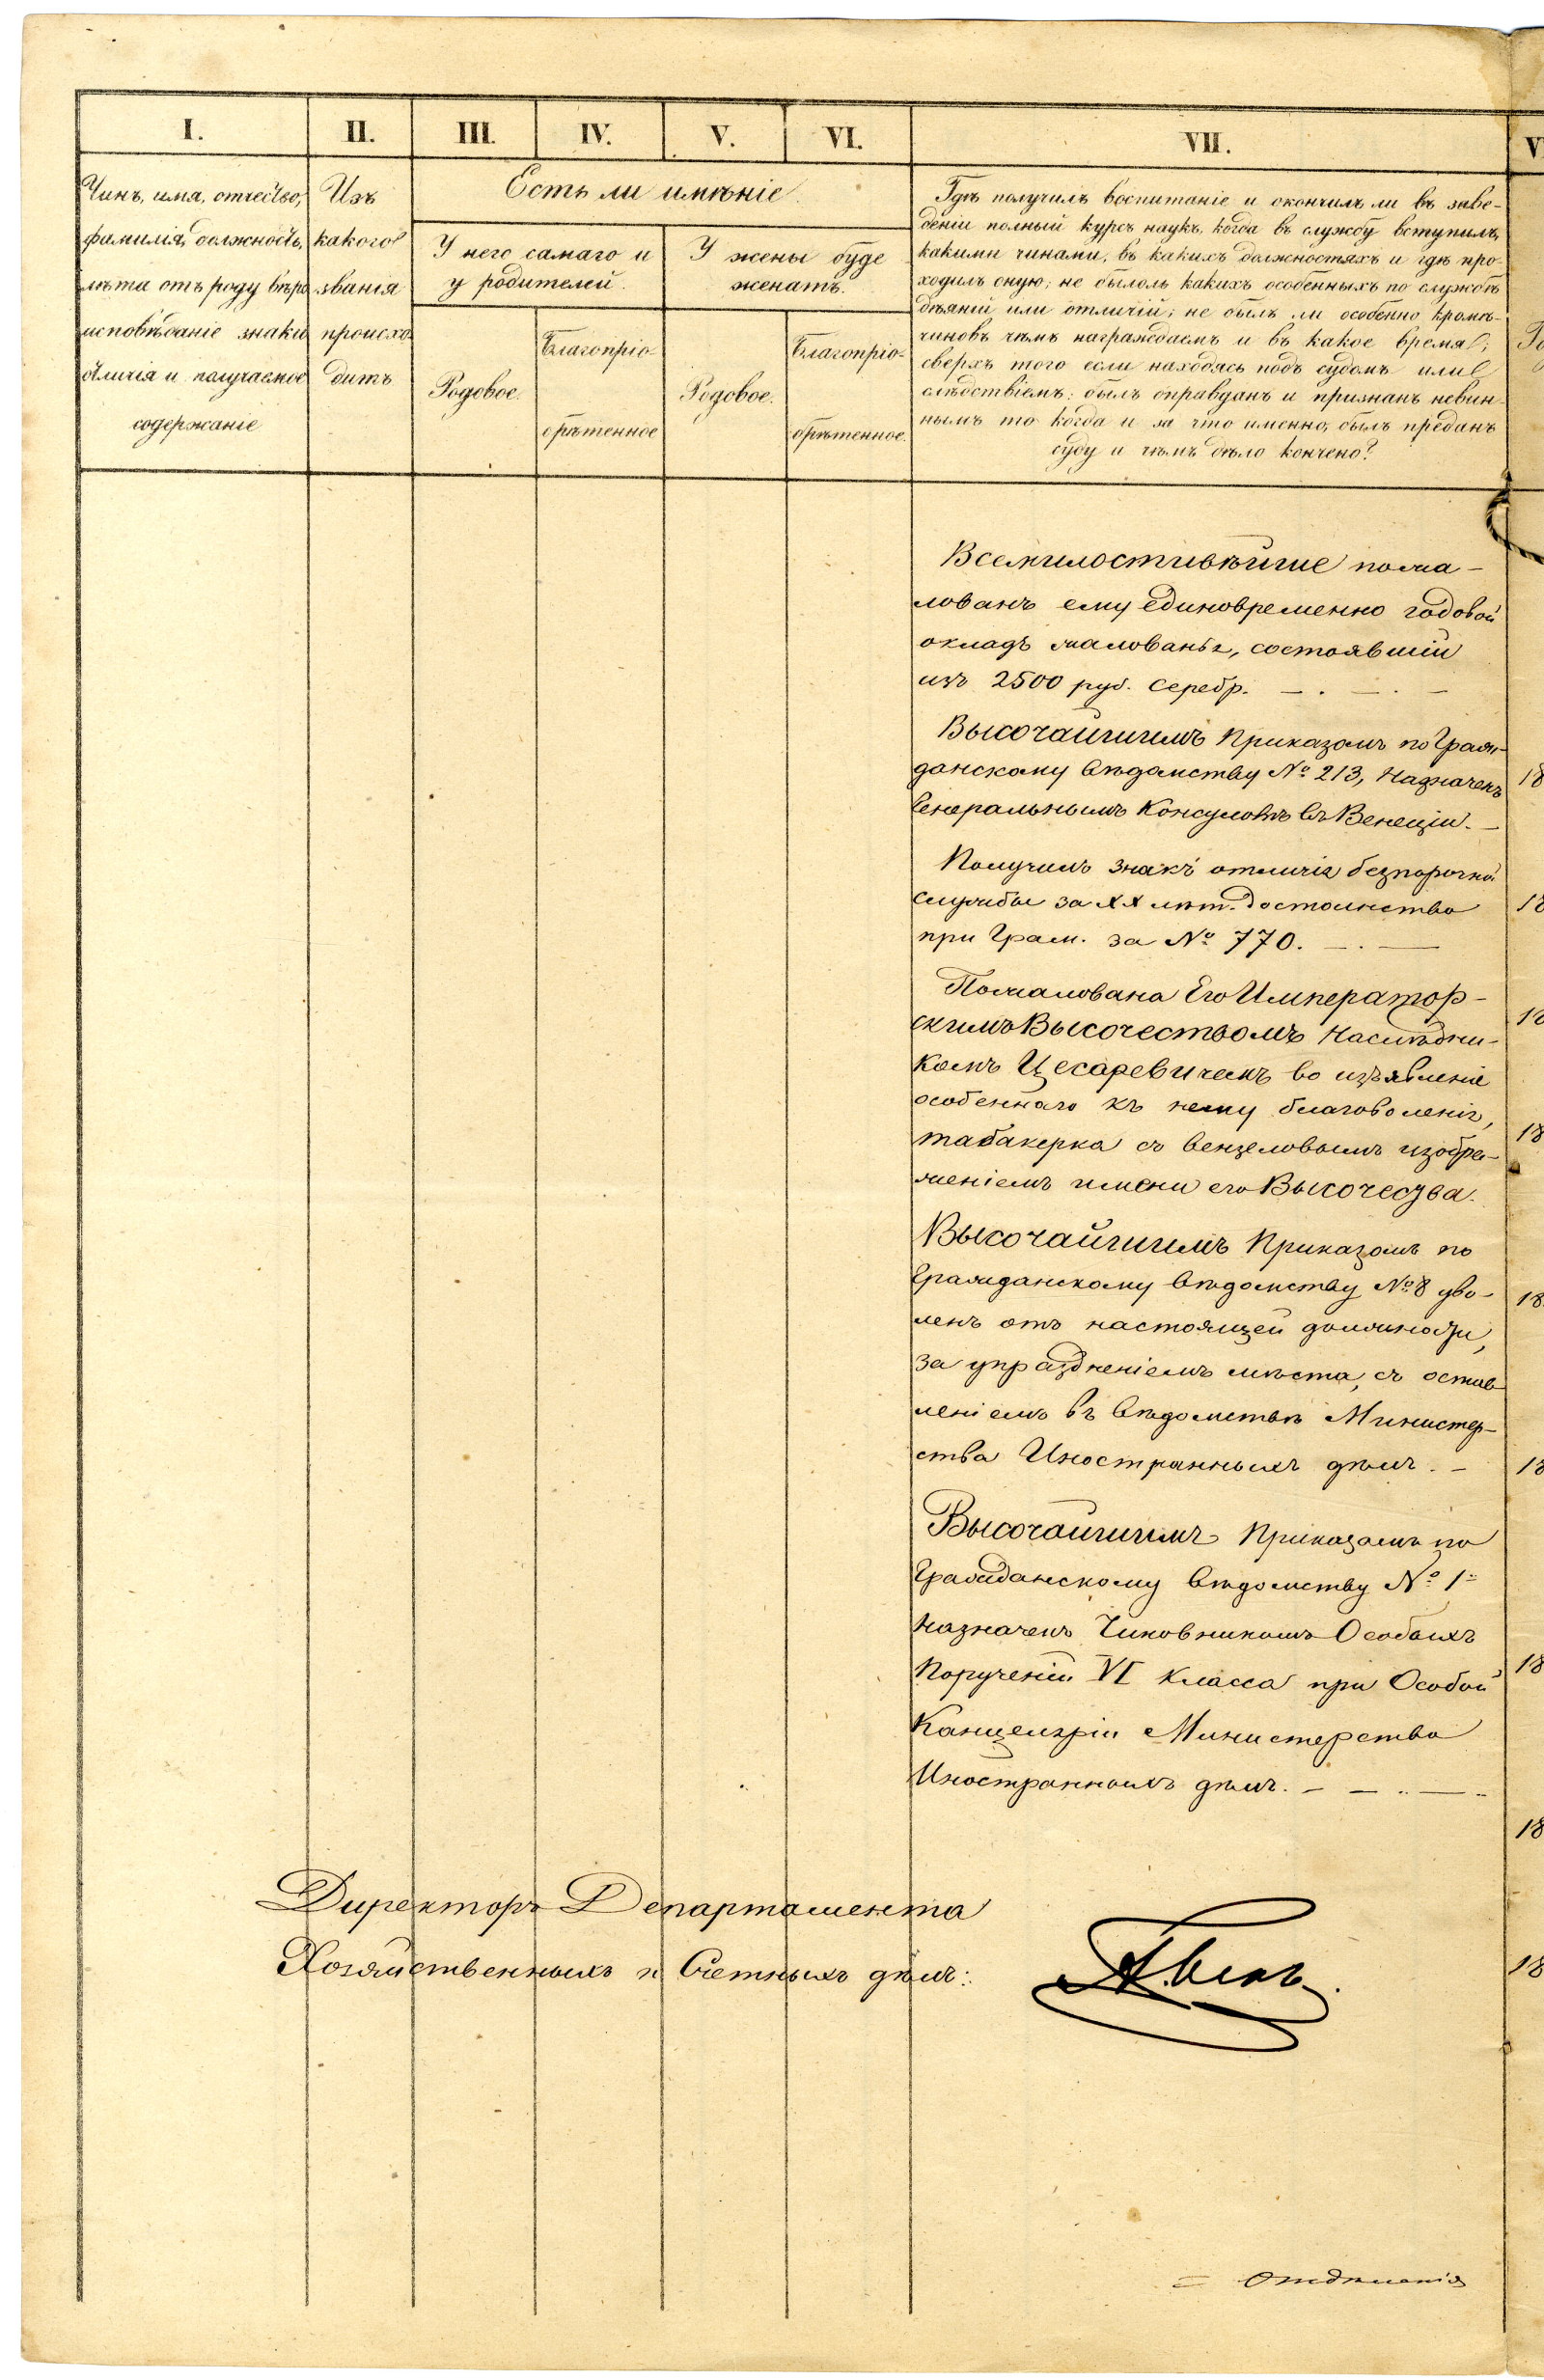 I.
II.
III.
IV.
V.
VI.
VII.
Чинъ, имя, отчество,
фамилія, должность,
лѣта отъ роду вѣро
исповѣданіе знаки
отличія и получаемое
содержаніе
Изъ
какого
званія
происхо-
дитъ
Есть ли имѣніе
У него самаго и
у родителей.
У жены буде
женатъ.
Родовое.
Благопріо-
обрѣтенное
Родовое.
Благопріо-
обрѣтенное.
Гдѣ получилъ воспитаніе и окончилъ ли въ заве-
деніи полный курсъ наукъ, когда въ службу вступилъ,
какими чинами, въ какихъ должностяхъ и гдѣ про-
ходилъ оную; не былоль какихъ особенныхъ по службѣ
дѣяній или отличій; не былъ ли особенно кромѣ-
чиновъ чѣмъ награждаемъ и въ какое время;
сверхъ того если находясь подъ судомъ или
слѣдствіемъ; былъ оправданъ и признанъ невин-
нымъ то когда и за что именно, былъ преданъ
суду и чѣмъ дѣло кончено?
Всемилостивѣйше пожа-
лованъ ему единовременно годовой
окладъ жалованья, состоявшій
изъ 2500 руб. серебр.
Высочайшимъ Приказомъ по Граж-
данскому вѣдомству № 213, Назначенъ
Генеральнымъ Консуломъ въ Венеціи.
Получилъ знакъ отличія безпорочной
службы за XX лѣт. достоинства
при Грам. за № 770.
Пожалована Его Император-
скимъ Высочествомъ Наслѣдни-
комъ Цесаревичемъ во изъявленіе
особеннаго къ нему благоволенія,
табакерка съ вензеловымъ изобра-
женіемъ имени его Высочества.
Высочайшимъ Приказомъ по
Гражданскому вѣдомству № 8 уво-
ленъ отъ настоящей должности,
за упраздненіемъ мѣста, съ остав-
леніемъ въ вѣдомствѣ Министер-
ства Иностранныхъ дѣлъ.
Высочайшимъ Приказомъ по
Гражданскому вѣдомству № 1
назначенъ Чиновникомъ Особыхъ
Порученій VI класса при Особой
Канцеляріи Министерства
Иностранныхъ дѣлъ.
Директоръ Департамента
Хозяйственныхъ и Счетныхъ дѣлъ:
18
18
18
18
18
18
18
18
18